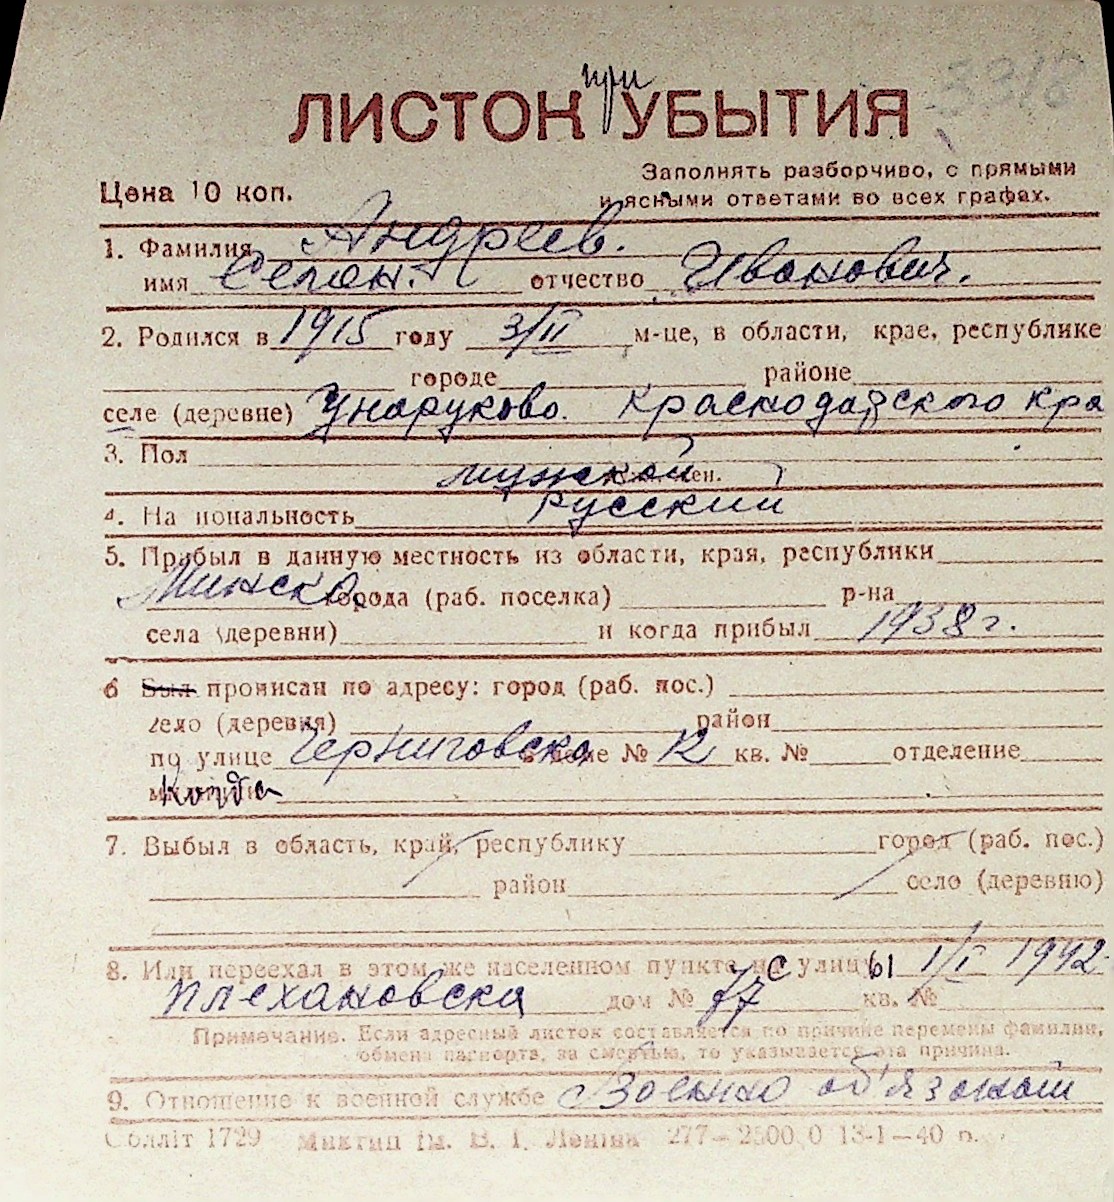 при
ЛИСТОК УБЫТИЯ
Цена 10 коп.
Заполнять разборчиво, с прямыми
и ясными ответами во всех графах.
1. Фамилия Андреев.
имя Семен. отчество Иванович.
2. Родился в 1915 году 3/II м-це, в области, крае, республике
городе районе
селе (деревне) Унаруково. Краснодарского кра
3. Пол мужской жен.
4. На иональность русский
5. Прибыл в данную местность из области, края, республики
Минска города (раб. поселка) р-на
села (деревни) и когда прибыл 1938 г.
6 Был прописан по адресу: город (раб. пос.)
село (деревня) район
по улице Черниговска доме № 12 кв. № отделение
когда
7. Выбыл в область, край, республику город (раб. пос.)
район село (деревню)
8. Или переехал в этом же населенном пункте на с улицы 1/I 1942.
Плехановска дом № 77 кв. №
Примечание. Если адресный листок составляется по причине перемены фамилии,
обмена паспорта, за смертью, то указывается эта причина.
9. Отношение к военной службе Военно об'язаной
Облліт 1729 Миктип ім. В. І. Леніна 277—2500 0 13-1—40 п.